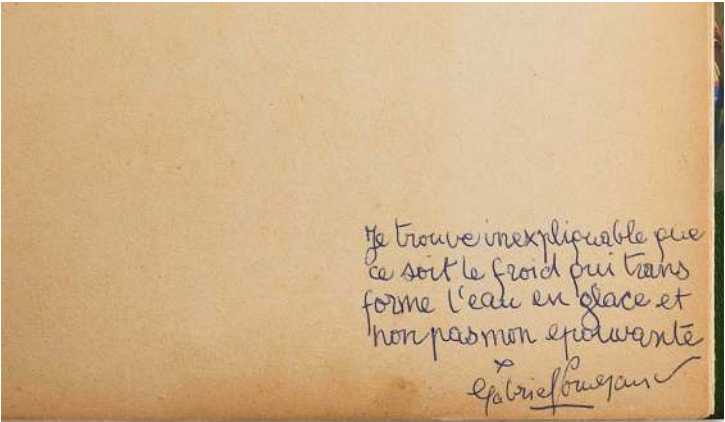 Je trouve inexpliquable que
ce soit le froid qui trans
forme l'eau en glace et
non pas mon epouvante
Gabriel